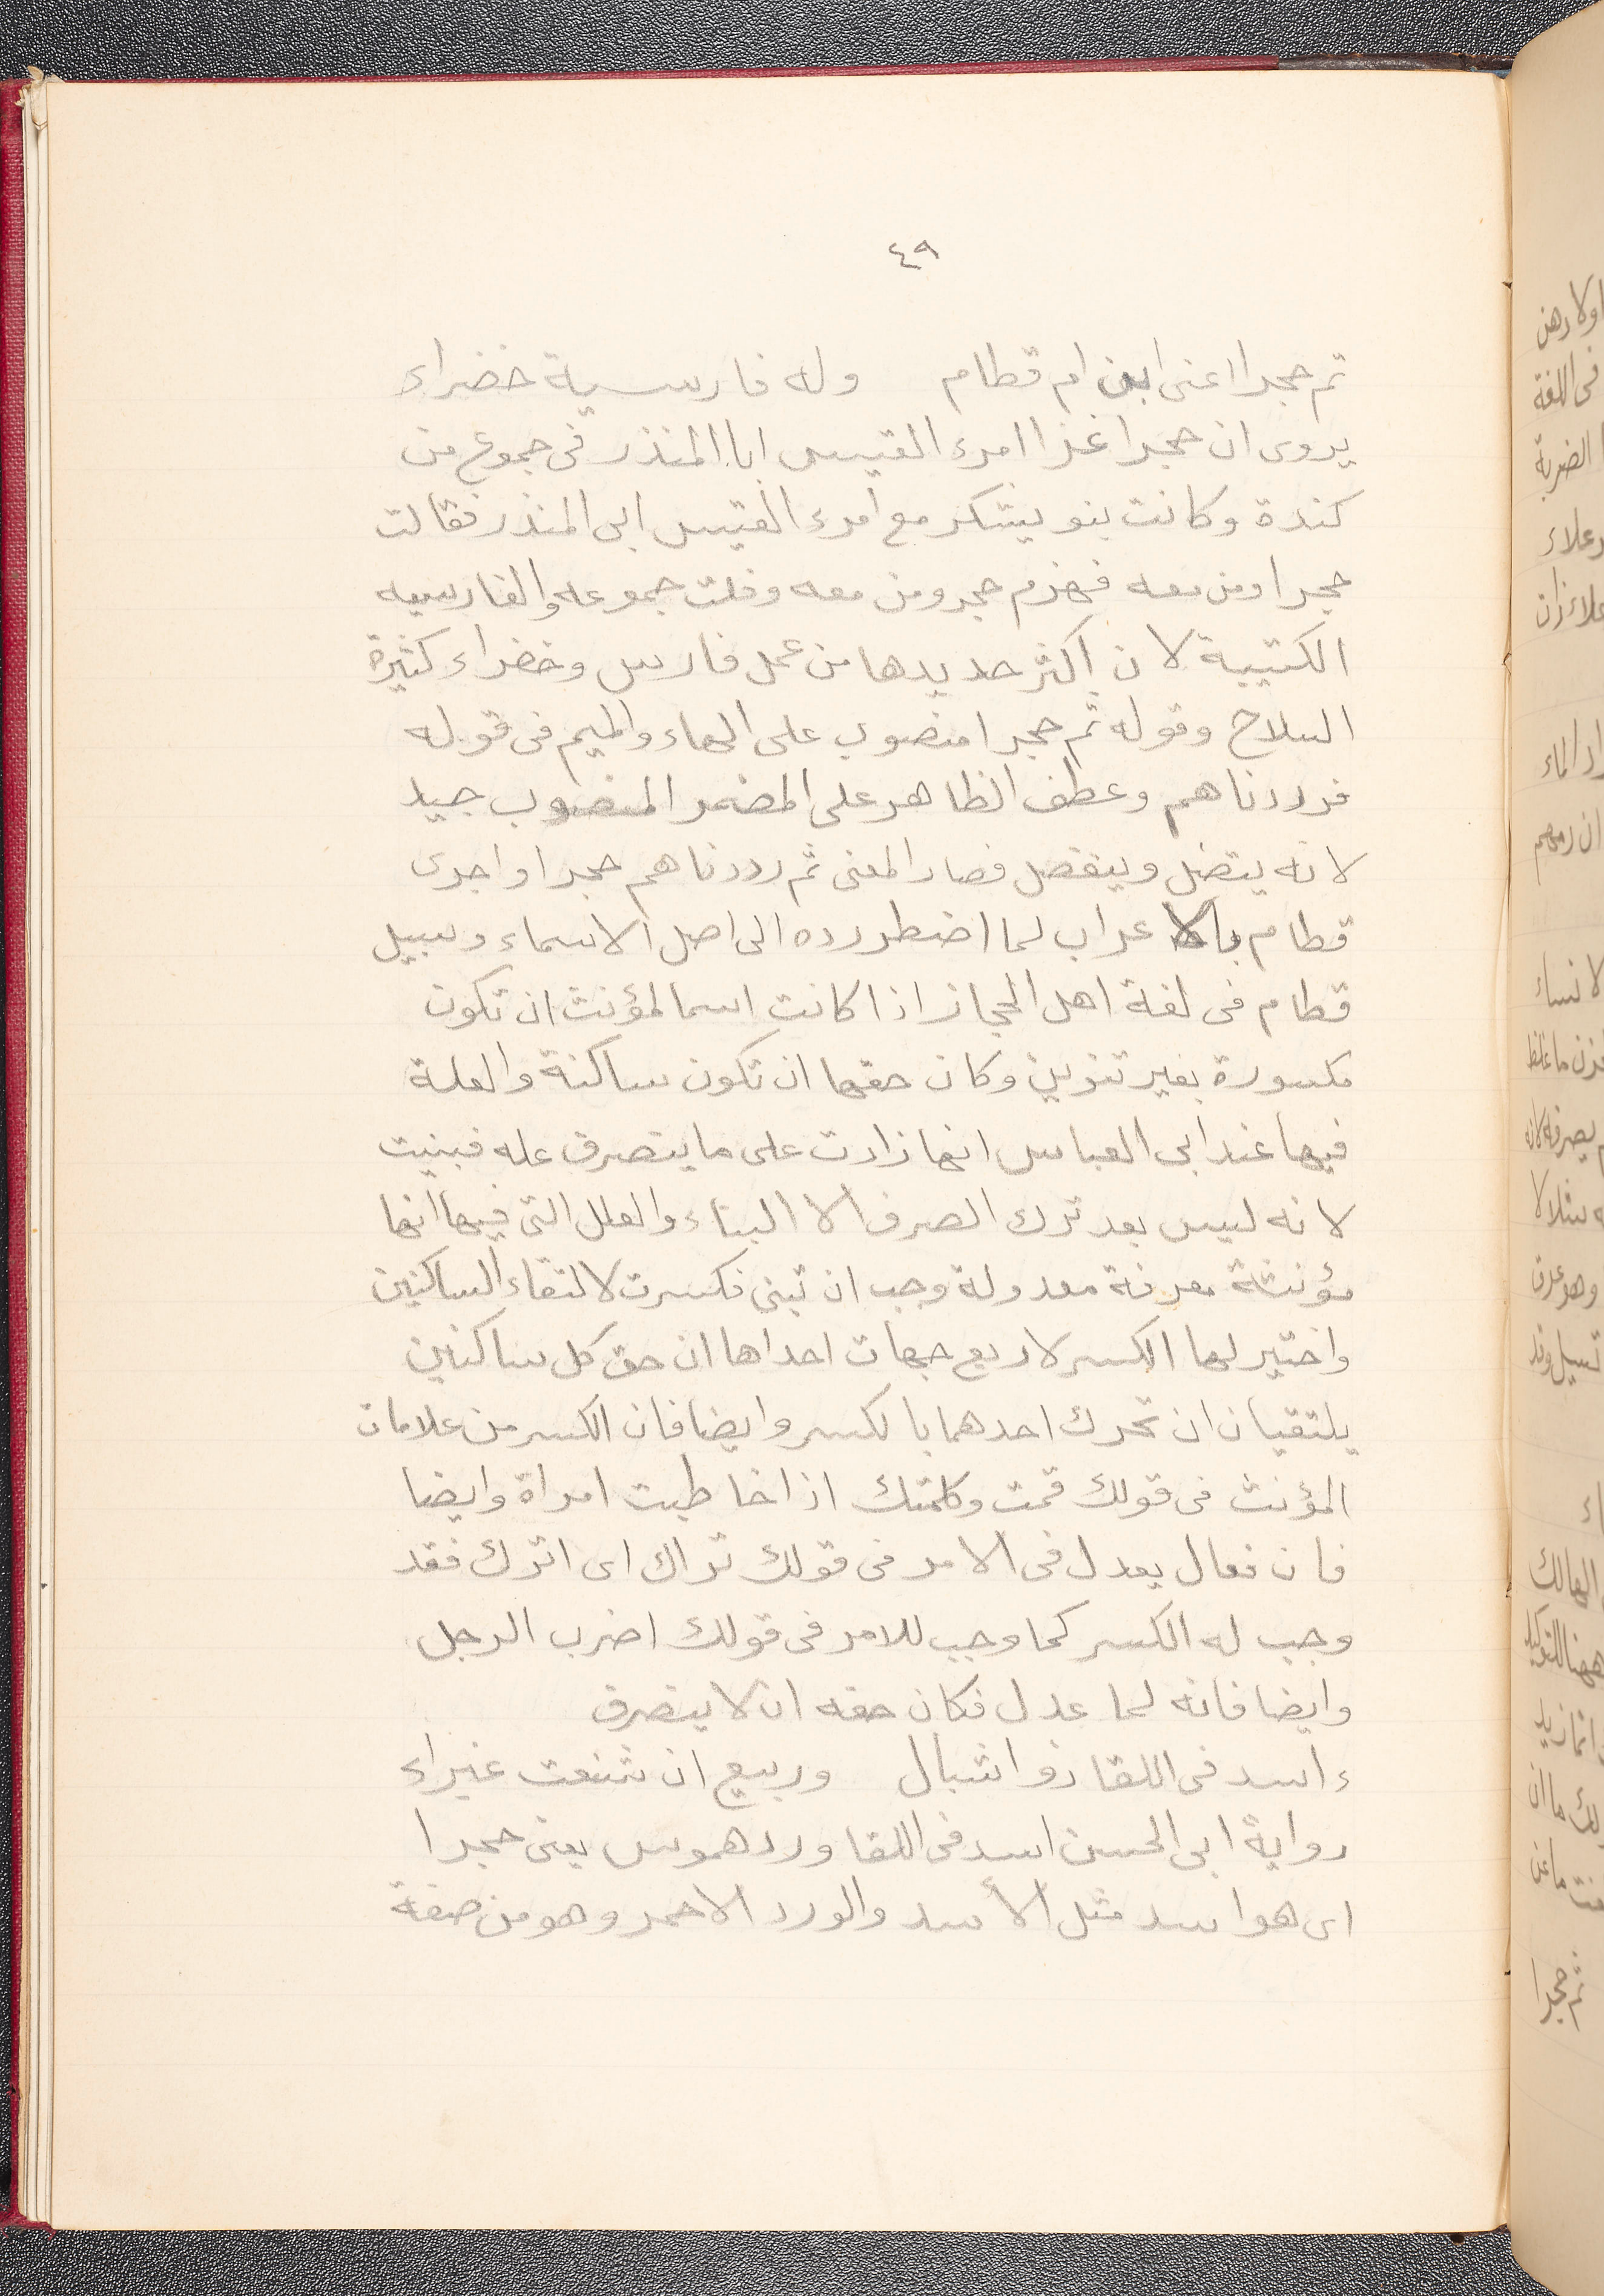 ٤٩
ثم حجرا اعنى ابن ام قطام وله فارسية خضراء
يروى ان حجرا غزا امرء القيس ابا المنذر فى جموع من
كندة وكانت بنو يشكر مع امرء القيس ابى المنذر فقالت
حجرا ومن معه فهزم حجر ومن معه وفلت جموعه والفارسيه
الكتيبة لان اكثر حديدها من عمل فارس وخضراء كثيرة
السلاح وقوله ثم حجرا منصوب على الهاء والميم فى قوله
فرددناهم وعطف الظاهر على المضمر المنصوب جيد
لانه يتصل وينفصل فصار المعنى ثم رددناهم حجرا واجرى
قطام بالاعراب لما اضطر رده الى اصل الاسماء وسبيل
قطام فى لغة اهل الحجاز اذا كانت اسما لمؤنث ان تكون
مكسورة بغير تنوين وكان حقها ان تكون ساكنة والعلة
فيها عند ابى العباس انها زادت على ما ينصرف عله فبنيت
لانه ليس بعد ترك الصرف الا البناء والعلل التى فيها انها
مؤنثة معرفة معدولة وجب ان تبنى فكسرت لالتقاء الساكنين
واختير لها الكسر لاربع جهات احداها ان حق كل ساكنين
يلتقيان ان تحرك احدهما بالكسر وايضا فان الكسر من علامات
المؤنث فى قولك قمت وكلمتك اذا خاطبت امراة وايضا
فان فعال يعدل فى الامر فى قولك تراك اى اترك فقد
وجب له الكسر كما وجب للامر فى قولك اضرب الرجل
وايضا فانه لما عدل فكان حقه ان لا ينصرف
ءاسد فى اللقا ذو اشبال وربيع ان شنعت غبراء
رواية ابى الحسن اسد فى اللقا ورد هموس يعنى حجرا
اى هو اسد مثل الأسد والورد الاحمر وهو من صفة